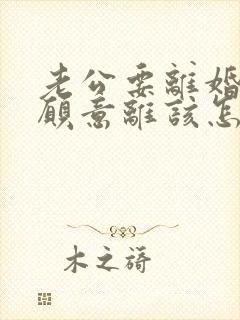 老公要離婚
願意離該怎
木之蒔